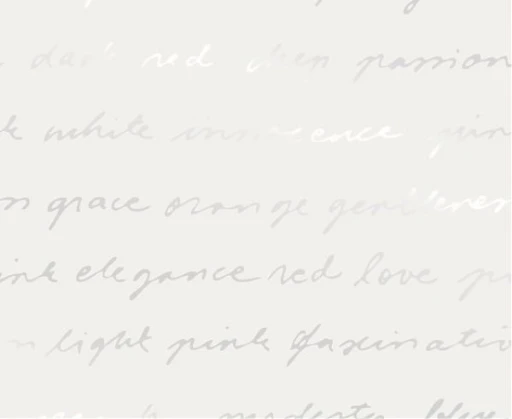 dark red deep passion
white innocence
grace orange gentleness
pink elegance red love
light pink fascinatio
modesty blue